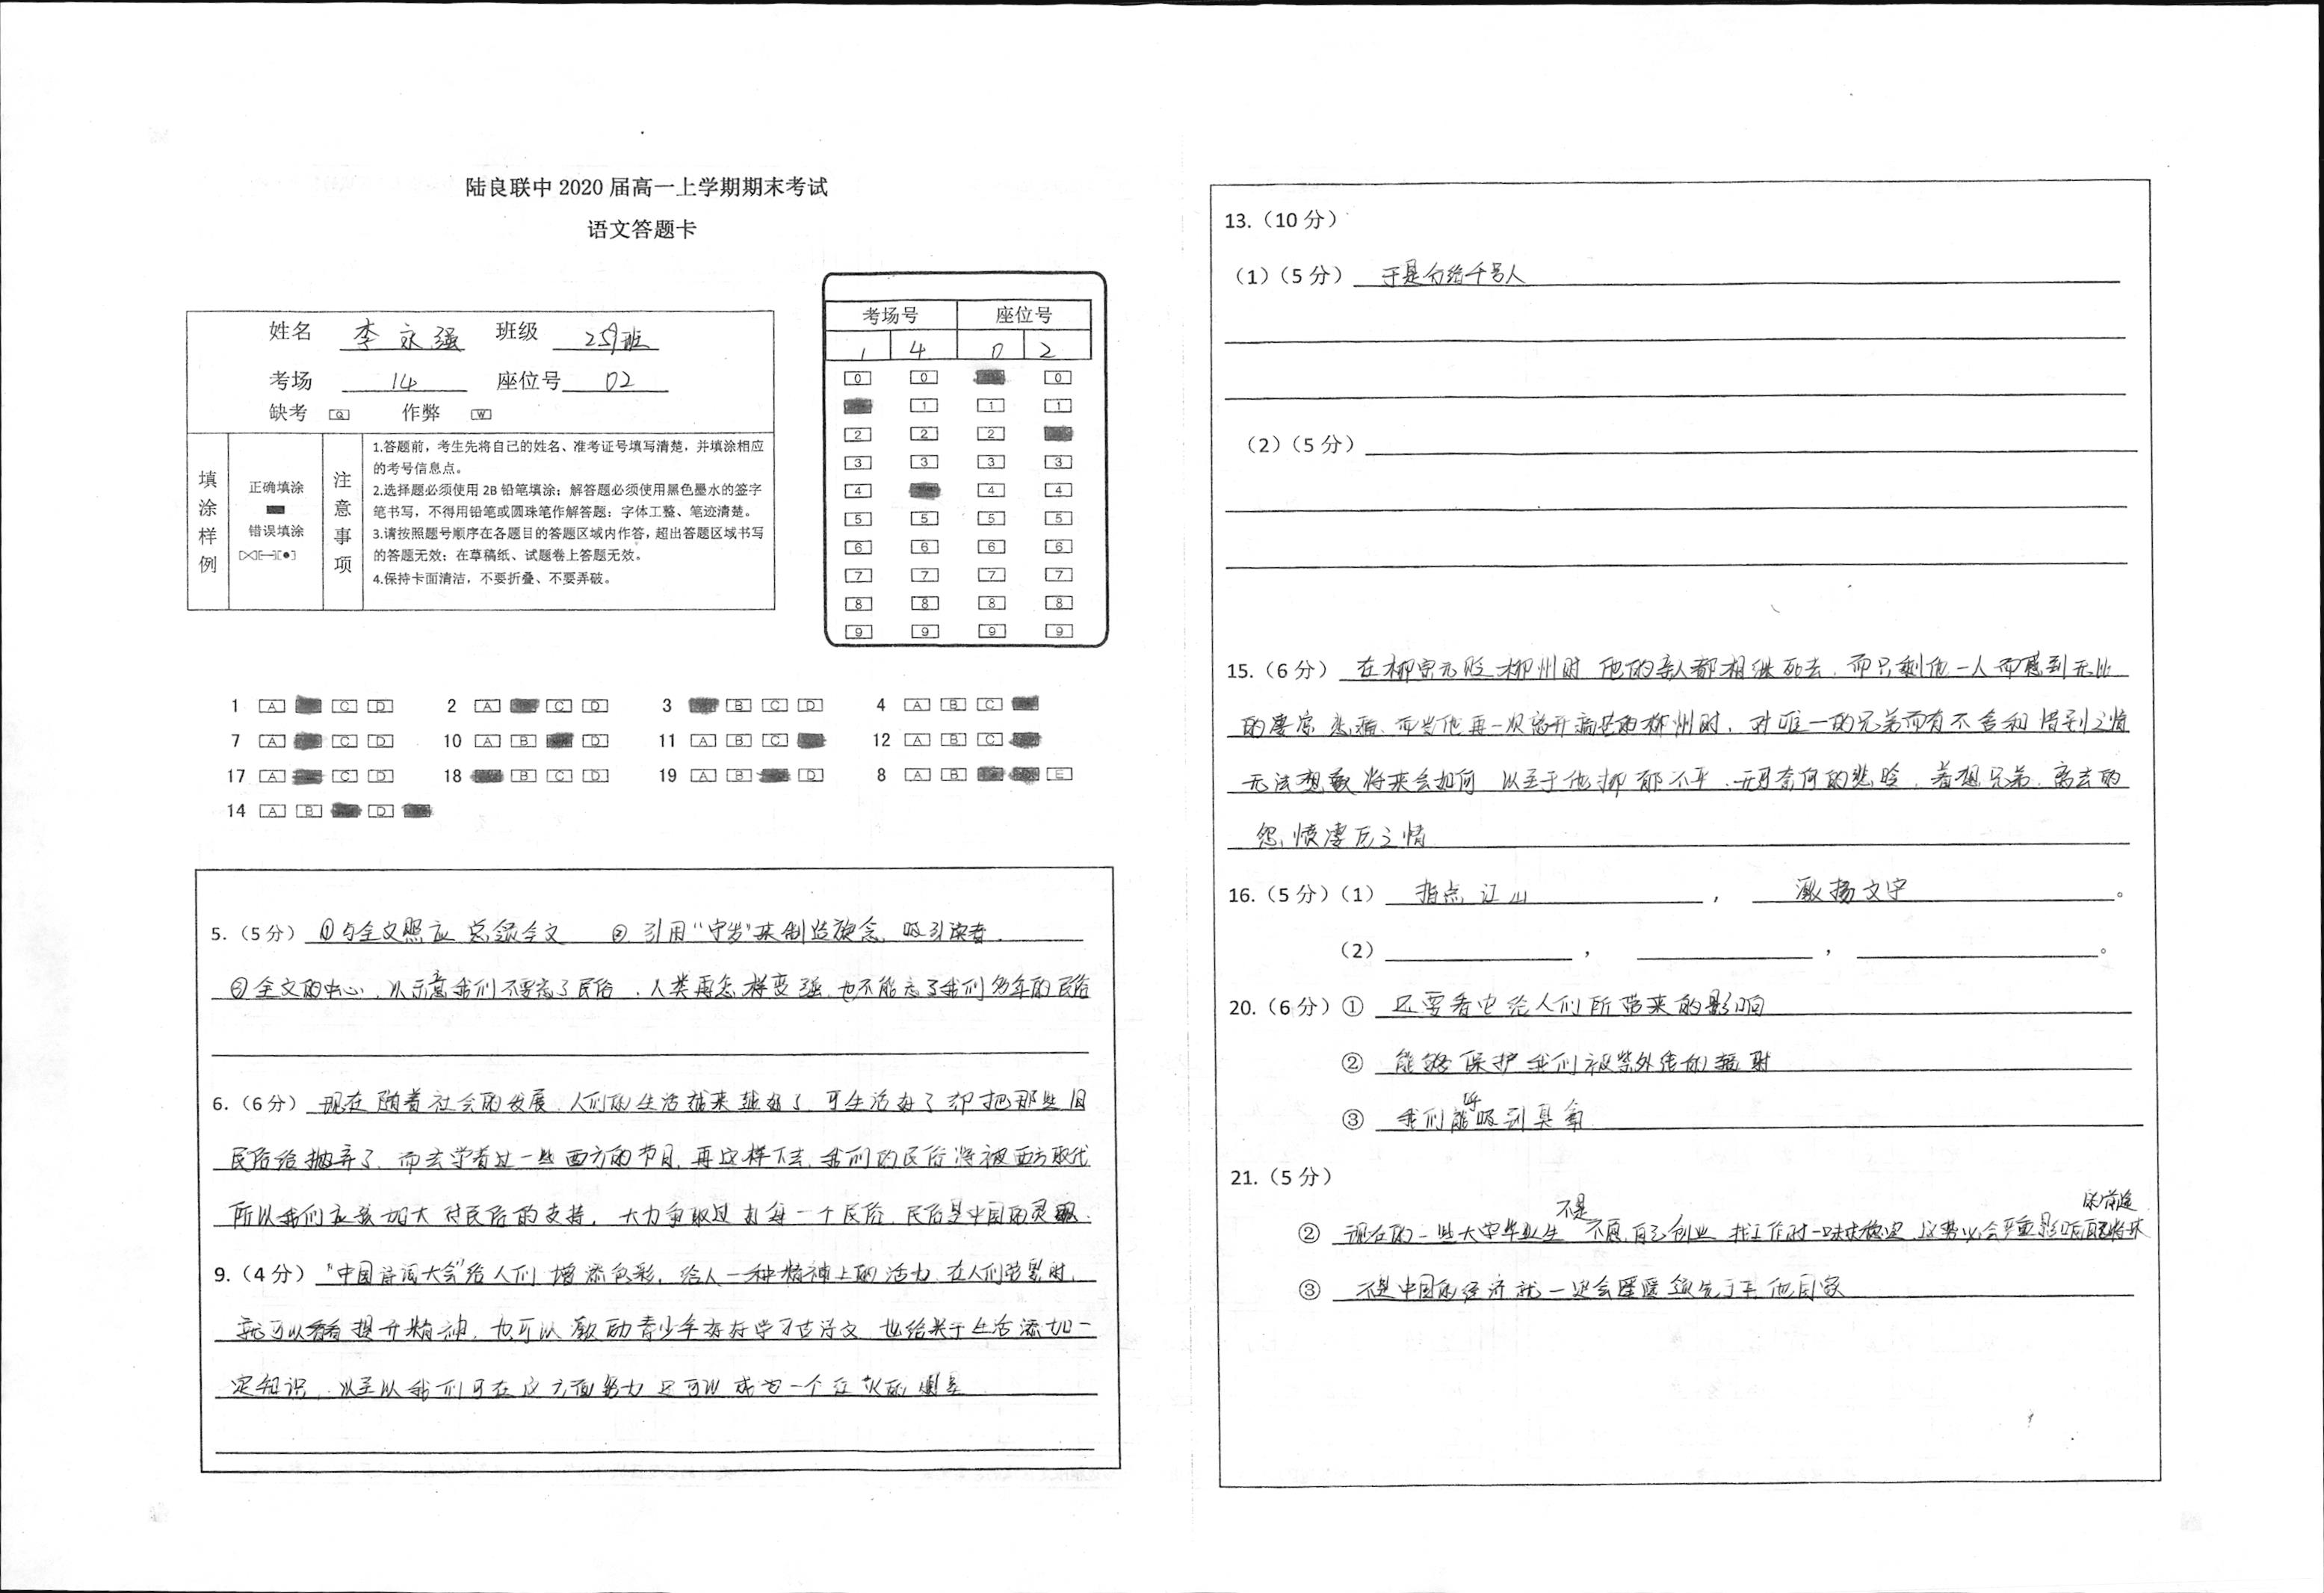 陆良联中 2020 届高一上学期期末考试
语文答题卡
姓名 李永强 班级 259班
考场 14 座位号 02
缺考 Q 作弊 W
填涂样例
正确填涂
错误填涂
注意事项
1.答题前，考生先将自己的姓名、准考证号填写清楚，并填涂相应
的考号信息点。
2.选择题必须使用 2B 铅笔填涂；解答题必须使用黑色墨水的签字
笔书写，不得用铅笔或圆珠笔作解答题；字体工整、笔迹清楚。
3.请按照题号顺序在各题目的答题区域内作答，超出答题区域书写
的答题无效；在草稿纸、试题卷上答题无效。
4.保持卡面清洁，不要折叠、不要弄破。
考场号 座位号
1 4 0 2
0 0 0
1 1 1
2 2 2
3 3 3 3
4 4 4
5 5 5 5
6 6 6 6
7 7 7 7
8 8 8 8
9 9 9 9
1 A C D 2 A C D 3 B C D 4 A B C
7 A C D 10 A B D 11 A B C 12 A B C
17 A C D 18 B C D 19 A B D 8 A B E
14 A B D
5.（5 分） ①与全文照应 总领全文 ② 引用"守岁"来制造悬念，吸引读者.
③全文的中心，以示意我们不要忘了民俗，人类再怎样变强，也不能忘了我们多年的民俗
6.（6 分） 现在随着社会的发展，人们的生活越来越好了，可生活好了却把那些旧
民俗给抛弃了，而去学着过一些西方的节日，再这样下去，我们的民俗将被西方取代
所以我们应该加大对民俗的支持，大力争取过好每一个民俗，民俗是中国的灵魂.
9.（4 分） "中国诗词大会"给人们增添色彩，给人一种精神上的活力，在人们劳累时，
就可以看看提升精神，也可以激励青少年好好学习古诗文，也给关于生活添加一
定知识，以至以我们可在这方面努力还可以成为一个
13.（10 分）
（1）（5 分） 于是分给千号人
（2）（5 分）
15.（6 分） 在柳宗元贬柳州时，他的亲人都相继死去，而只剩他一人而感到无比
的凄凉 悲痛，而当他再一次离开 柳州时，对唯一的兄弟而有不舍和惜别之情
无法想象将来会如何，以至于他抑郁不平，无可奈何的悲 ，着想兄弟，离去的
怨、愤凄厉之情
16.（5 分）（1） 指点江山 ， 激扬文字 。
（2） ， ， 。
20.（6 分）① 还要看它给人们所带来的影响
② 能够保护我们被紫外线的辐射
③ 我们能呼吸到臭氧
21.（5 分）
② 现在的一些大学毕业生不是不愿自己创业，找工作时一味求稳定，这势必会严重影响 的前途
③ 不是中国的经济就一定会遥遥领先于其他国家